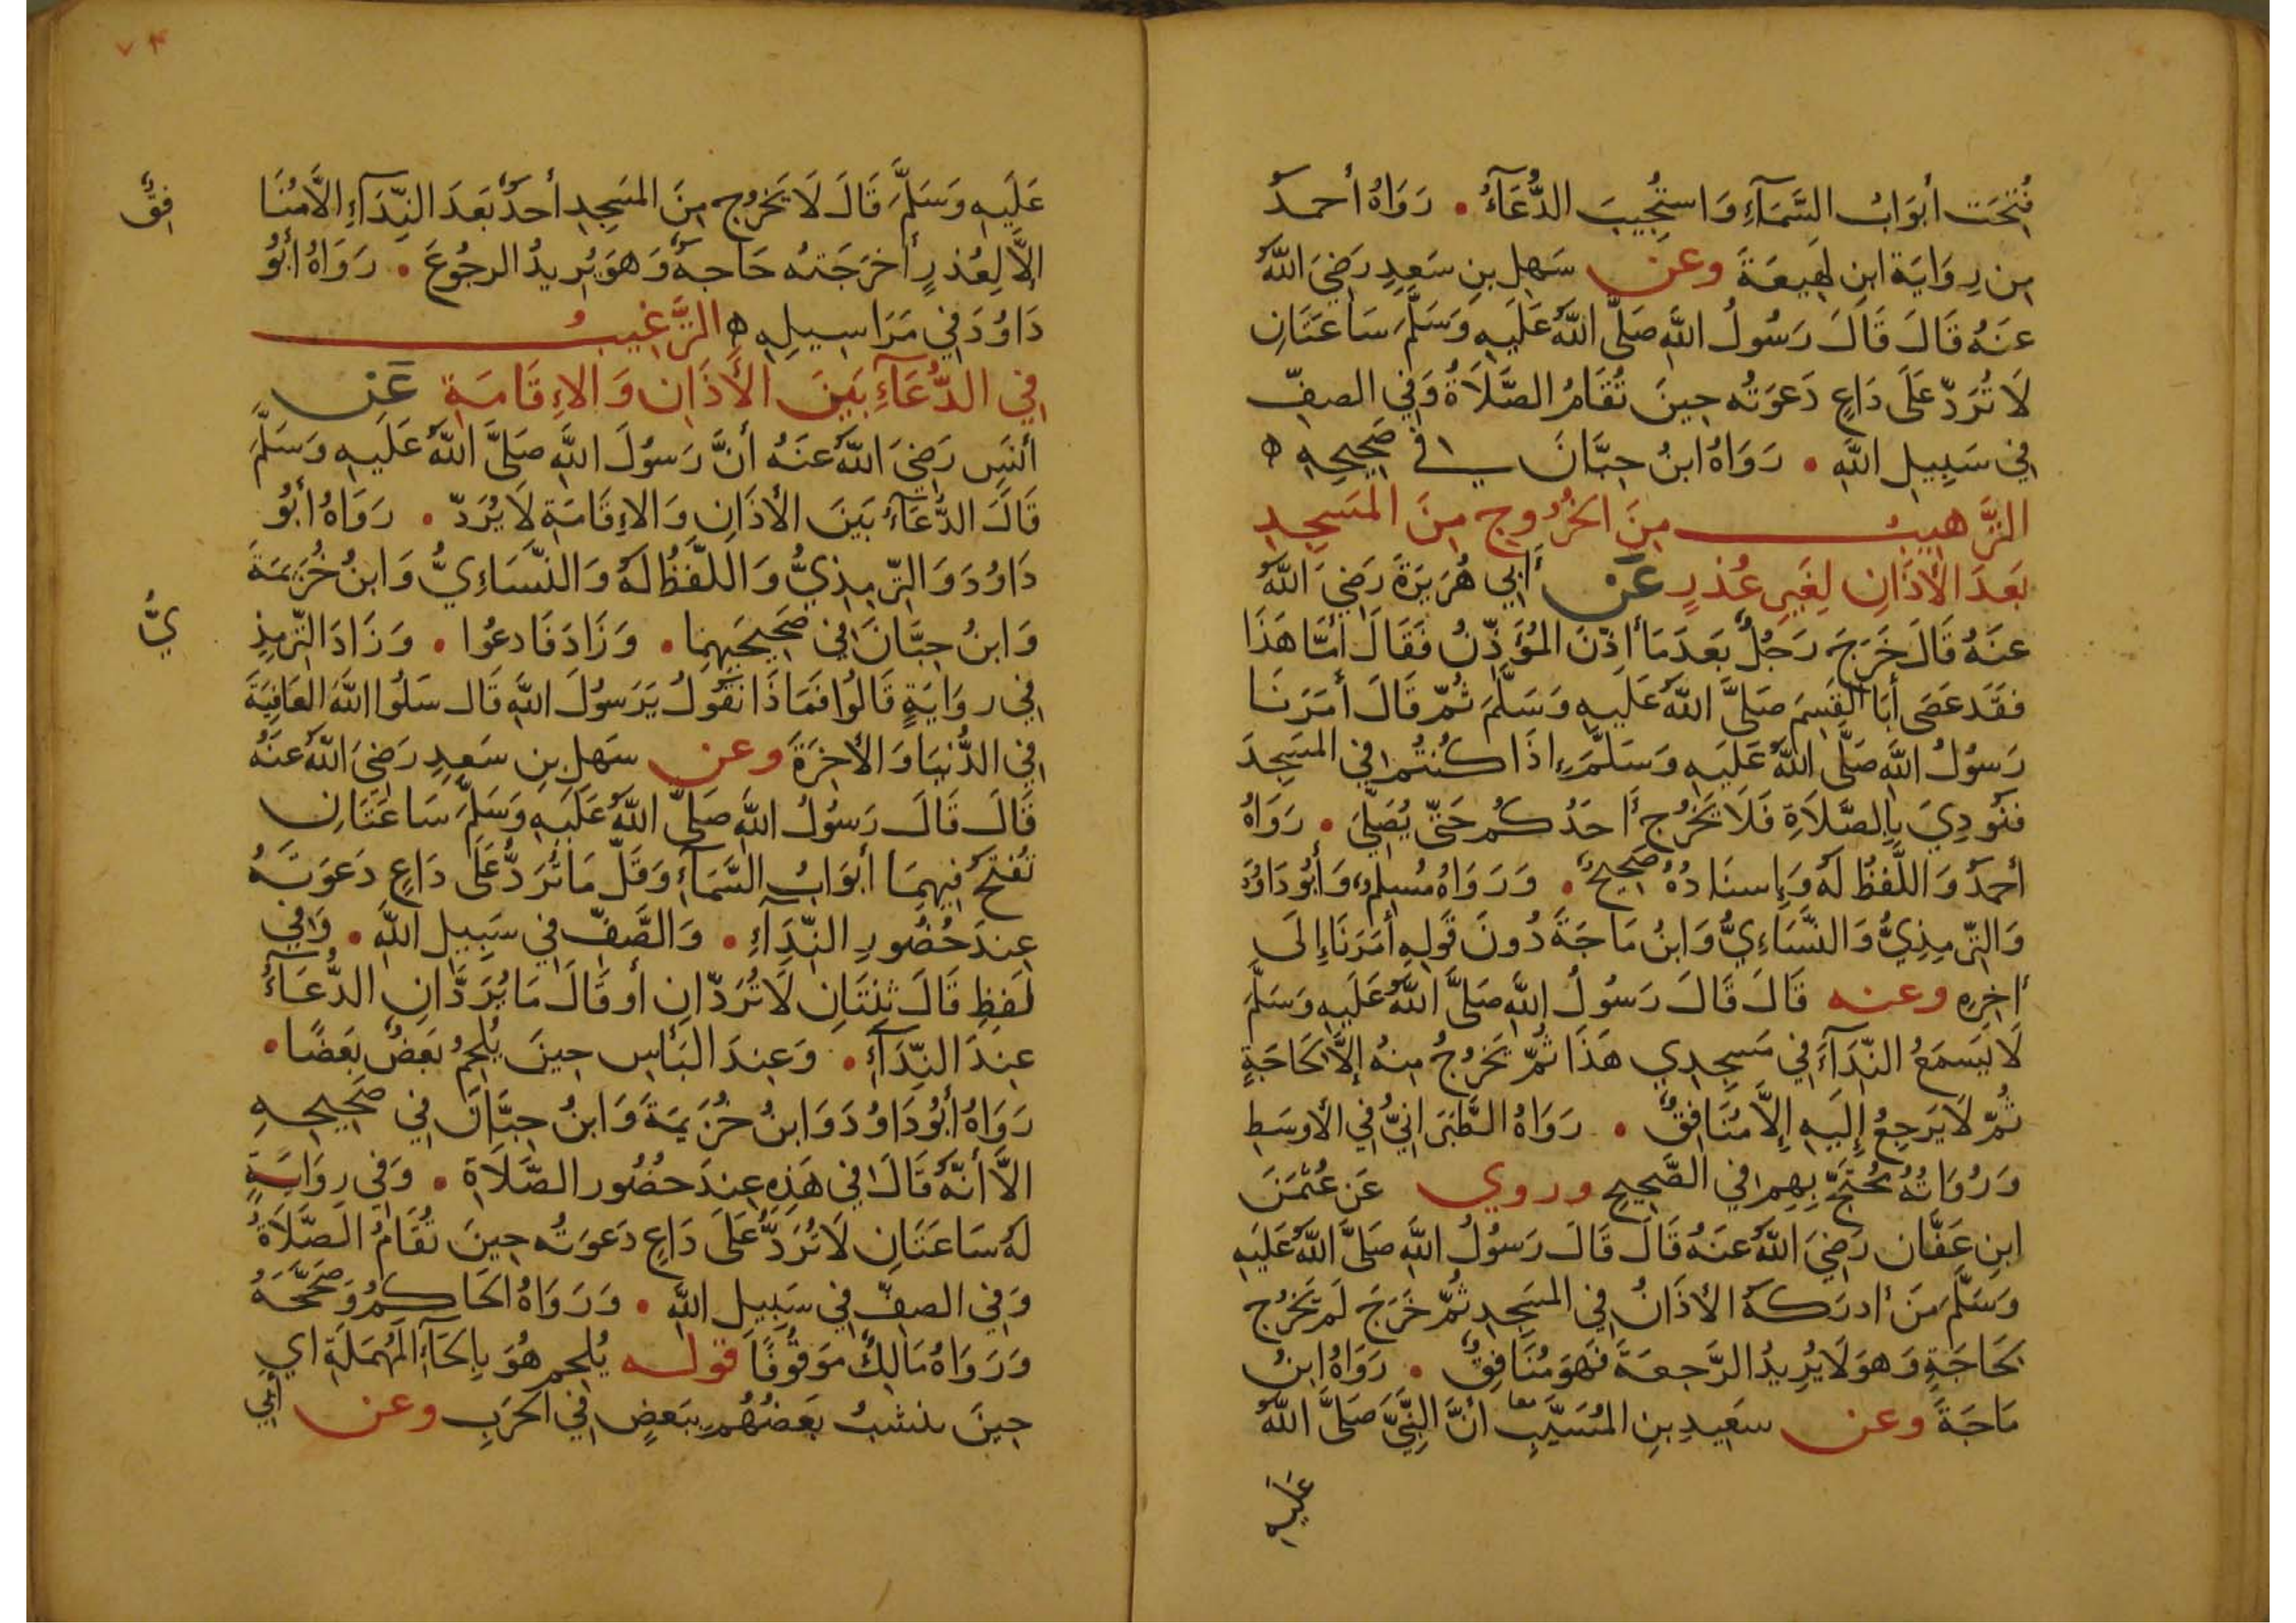 فُتِحَت أبوَابُ السَّمَآءِ وَاستُجِيبَ الدُّعَآءُ . رَوَاهُ أحمدُ
مِن رِوَايَة ابنِ لهِيعَةَ وعن سَهلِ بنِ سَعِيدِ رَضِيَ اللّهُ
عَنهُ قَالَ قَالَ رَسُولُ اللّهِ صَلَّى اللّهُ عَلَيهِ وَسَلَّمَ سَاعَتَانِ
لَا تُرَدّ عَلَى دَاعٍ دَعوَتُه حِينَ تُقَامُ الصَّلَاةُ وَفِي الصفِّ
فِي سَبِيلِ اللّهِ . رَوَاهُ ابنُ حِبَّانَ في صَحِيحِهِ ه
التَّرهيبُ مِنَ الخرُوجِ مِنَ المَسجِدِ
بَعدَ الأذَانِ لِغَيرِ عُذرٍ عَن أبِي هُرَيرَةَ رَضِيَ اللّهُ
عَنهُ قَالَ خَرَجَ رَجُلٌ بَعدَ مَا أذّنَ المُؤَذّنُ فَقَالَ أمَّا هَذَا
فَقَد عَصَى أبَا القسِمِ صَلَّى اللّهُ عَلَيهِ وَسَلَّمَ ثُمّ قَالَ أمَرَنَا
رَسُولُ اللّهِ صَلَّى اللّهُ عَلَيهِ وَسَلَّمَ إذَا كُنتُم فِي المَسجِدِ
فَنُودِيَ بِالصَّلَاةِ فَلَا يَخرُج أحَدُكُم حَتّى يُصَلِّيَ . رَوَاهُ
أحمدُ وَاللَّفظُ لَهُ وَإسنَادُهُ صَحِيحٌ . وَرَوَاهُ مُسلِمٌ وَأبُو دَاوُدَ
وَالتّرمِذِيُّ وَالنَّسَاءِيُّ وَابنُ مَاجَةَ دُونَ قَولِهِ أمَرَنَا إلَى
أخِرِهِ وعنه قَالَ قَالَ رَسُولُ اللّهِ صَلَّى اللّهُ عَلَيهِ وَسَلَّمَ
لَا يَسمَعُ النِّدَآءَ فِي مَسجِدِي هَذَا ثُمّ يَخرُجُ مِنهُ إلَّا لحَاجَةٍ
ثُمّ لَا يَرجِعُ إلَيهِ إلَّا مُنَافِقٌ . رَوَاهُ الطَّبَرَانِيُّ فِي الأوسَطِ
وَرُوَاتُهُ مُحتَجّ بِهِم فِي الصَّحِيحِ وروي عَن عُثمَنَ
ابنِ عَفَّان رَضِيَ اللّهُ عَنهُ قَالَ قَالَ رَسُولُ اللّهِ صَلَّى اللّهُ عَلَيهِ
وَسَلَّمَ مَن أدرَكَهُ الأذَانُ فِي المَسجِدِ ثُمّ خَرَجَ لَم يَخرُج
لحَاجَةٍ وَهوَ لَا يُرِيدُ الرَّجعَةَ فَهوَ مُنَافِقٌ . رَوَاهُ ابنُ
مَاجَةَ وعن سَعِيدِ بنِ المُسَيَّبِ معا أنَّ النَّبِيَّ صَلَّى اللّهُ
عَلَيهِ
٧٤
عَلَيهِ وَسَلَّمَ قَالَ لَا يَخرُج مِنَ المَسجِدِ أحَدٌ بَعدَ النِّدَآءِ إلَّا مُنَا
فِقٌ
إلَّا لِعُذرٍ أخرَجَتهُ حَاجةٌ وَهوَ يُرِيدُ الرجُوعَ . رَوَاهُ أبُو
دَاوُدَ فِي مَرَاسِيلِهِ ه التَّرغِيبُ
فِي الدُّعَآءِ بَينَ الأَذَانِ وَالإقَامَةِ عَن
أنَسٍ رَضِيَ اللّهُ عَنهُ أنَّ رَسُولَ اللّهِ صَلَّى اللّهُ عَلَيهِ وَسَلَّمَ
قَالَ الدُّعَآءُ بَينَ الأذَانِ وَالإقَامَةِ لَا يُرَدّ . رَوَاهُ أبُو
دَاوُدَ وَالتّرمِذِيُّ وَاللَّفظُ لَهُ وَالنَّسَاءِيُّ وَابنُ خُزَيمَةَ
وَابنُ حِبَّانَ فِي صَحِيحَيهِمَا . وَزَادَ فَادعُوا . وَزَادَ التّرمِذِ
يُّ
فِي رِوَايَةٍ قَالُوا فَمَاذَا نَقُولُ يَرَسُولَ اللّهِ قَالَ سَلُوا اللّهَ العَافِيَةَ
فِي الدُّنيَا وَالأخِرَةَ وعن سَهلِ بنِ سَعِيدِ رَضِيَ اللّهُ عَنهُ
قَالَ قَالَ رَسُولُ اللّهِ صَلَّى اللّهُ عَلَيهِ وَسَلَّمَ سَاعَتَانِ
تُفتَحُ فِيهِمَا أبوَابُ السَّمَآءِ وَقَلّ مَا تُرَدُّ عَلَى دَاعٍ دَعوَتَهُ
عِندَ حُضُورِ النِّدَآءِ . وَالصَّفّ فِي سَبِيلِ اللّهِ . وَفِي
لَفظِ قَالَ ثِنتَانِ لَا تُرَدّانِ أو قَالَ مَا يُرَدَّانِ الدُّعَآءُ
عِندَ النِّدَآءِ . وَعِندَ البَأسِ حِينَ يُلحِمُ بَعضٌ بَعضًا .
رَوَاهُ أبُو دَاوُدَ وَابنُ خُزَيمَةَ وَابنُ حِبَّانَ فِي صَحِيحِهِ
إلَّا أنّهُ قَالَ فِي هَذِهِ عِندَ حُضُورِ الصَّلَاةِ . وَفِي رِوَايَةٍ
لَهُ سَاعَتَانِ لَا تُرَدُّ عَلَى دَاعٍ دَعوَتُه حِينَ تُقَامُ الصَّلَاةُ
وَفِي الصفِّ فِي سَبِيلِ اللّهِ . وَرَوَاهُ الحَاكِمُ وَصَحَّحَهُ
وَرَوَاهُ مَالِكٌ مَوقُوفًا قوله يُلحِم هُوَ بِالحَآءِ المُهمَلَةِ اي
حِينَ ينشبُ بَعضُهُم بِبَعضٍ فِي الحَربِ وعن أبِي